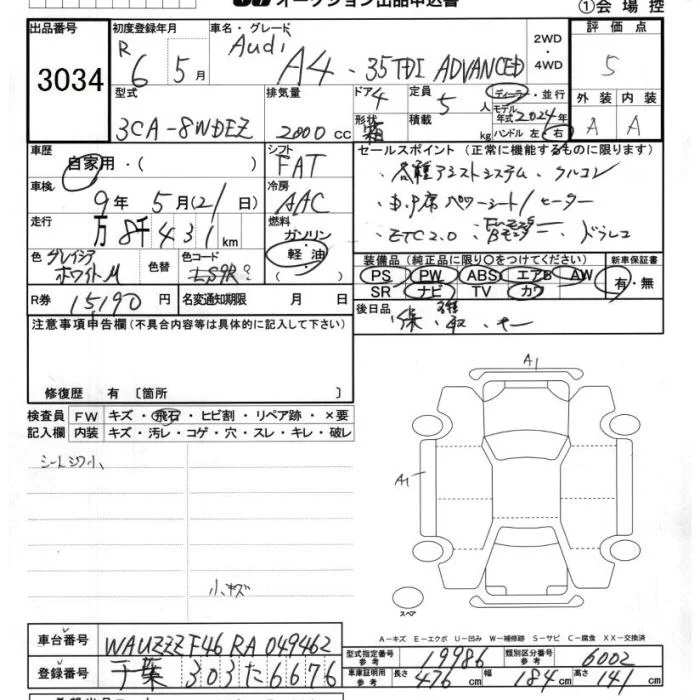 オークション出品申込書
①会場控
出品番号
3034
初度登録年月
R 6 5月
車名・グレード
Audi A4 - 35TDI ADVANCED
2WD
・4WD
評価点
5
型式
3CA-8WDEZ
排気量
2000 CC
ドア
4
形状
箱
定員
5人
積載
kg
ディーラー・並行
モデル年式 2024年
ハンドル 左・右
外装 内装
A A
車歴
自家用・( )
シフト
FAT
車検
9年 5月(21日)
冷房
AAC
走行
万 8千 4 3 1 km
燃料
ガソリン
軽油
( )
色 グレイシア
ホワイトM
色替
色コード
LS9R?
R券
15190 円
名変通知期限 月 日
セールスポイント(正常に機能するものに限ります)
・各種アシストシステム・クルコン
・D.P席パワーシート/ヒーター
・ETC2.0 ・Bモニター ・ドラレコ
装備品(純正品に限り○をつけてください)
新車保証書
PS PW ABS エアB AW
SR ナビ TV カワ
有・無
後日品
保・取・キー
注意事項申告欄(不具合内容等は具体的に記入して下さい)
修復歴 有〔箇所 〕
検査員 FW キズ・飛石・ヒビ割・リペア跡・×要
記入欄 内装 キズ・汚レ・コゲ・穴・スレ・キレ・破レ
シートシワ小、
小キズ
A1
A1
スペア
A−キズ E−エクボ U−凹み W−補修跡 S−サビ C−腐食 XX−交換済
車台番号
WAUZZZF46RA049462
登録番号
千葉 303 た 6676
型式指定番号
参考
19986
類別区分番号
参考
6002
車庫証明用
参考
長さ 476cm 幅 184cm 高さ 141cm